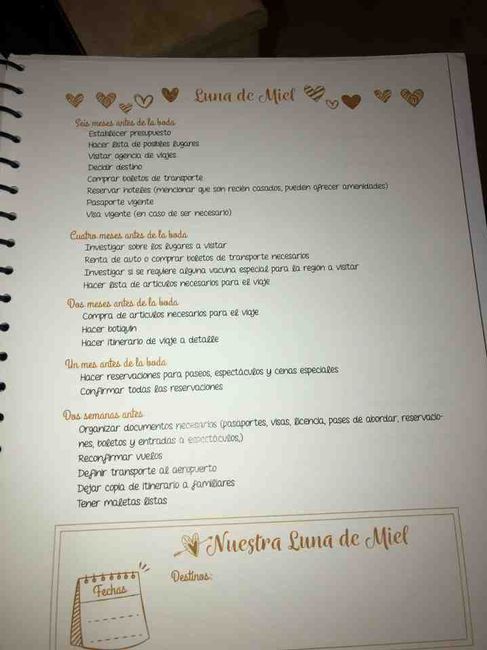 Luna de Miel
Seis meses antes de la boda
Establecer presupuesto
Hacer lista de posibles lugares
Visitar agencia de viajes
Decidir destino
Comprar boletos de transporte
Reservar hoteles (mencionar que son recién casados, pueden ofrecer amenidades)
Pasaporte vigente
Visa vigente (en caso de ser necesario)
Cuatro meses antes de la boda
Investigar sobre los lugares a visitar
Renta de auto o comprar boletos de transporte necesarios
Investigar si se requiere alguna vacuna especial para la región a visitar
Hacer lista de artículos necesarios para el viaje
Dos meses antes de la boda
Compra de artículos necesarios para el viaje
Hacer botiquín
Hacer itinerario de viaje a detalle
Un mes antes de la boda
Hacer reservaciones para paseos, espectáculos y cenas especiales
Confirmar todas las reservaciones
Dos semanas antes
Organizar documentos necesarios (pasaportes, visas, licencia, pases de abordar, reservacio-
nes, boletos y entradas a espectáculos,)
Reconfirmar vuelos
Definir transporte al aeropuerto
Dejar copia de itinerario a familiares
Tener maletas listas
Nuestra Luna de Miel
Fechas
Destinos: